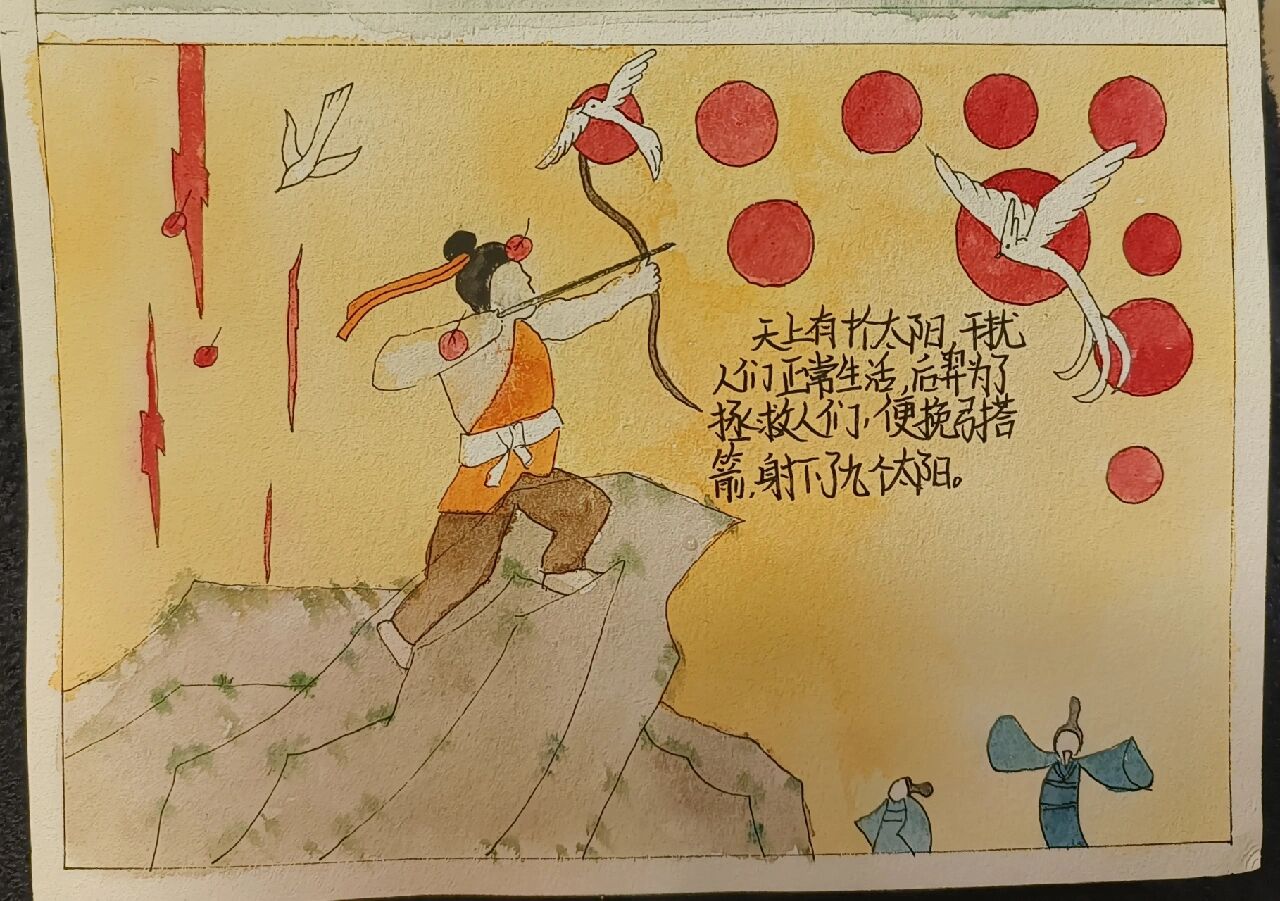 天上有十个太阳,干扰
人们正常生活,后羿为了
拯救人们,便挽弓搭
箭,射下了九个太阳。